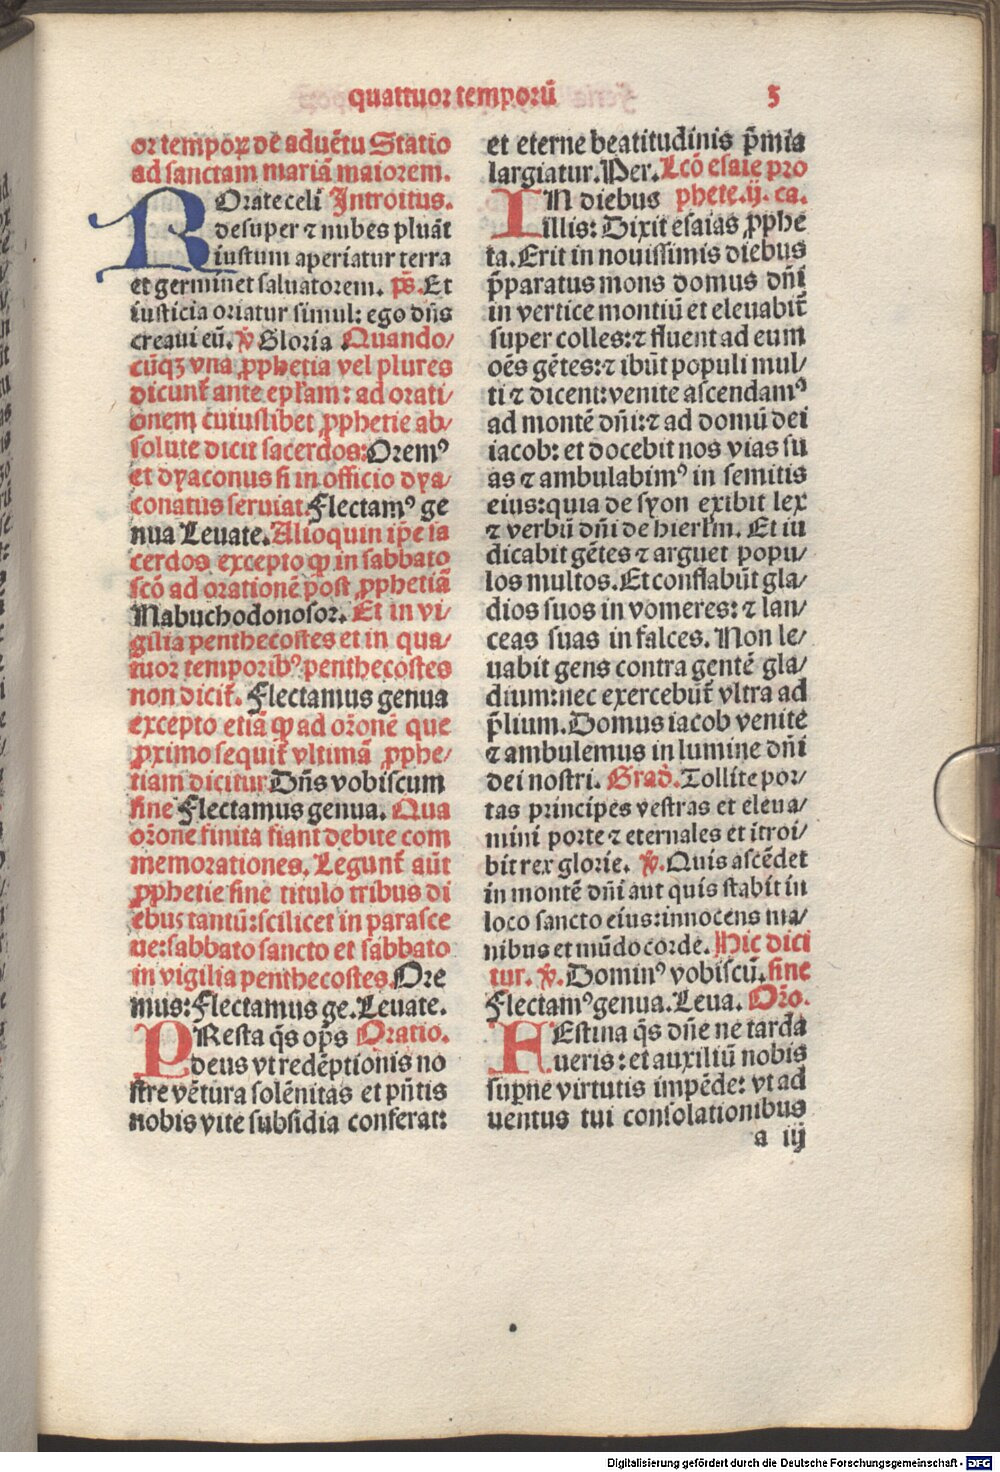 quattuor temporū 5
or tempoꝝ de aduētu Statio
ad sanctam mariā maiorem.
ROrate celi Introitus.
desuper ⁊ nubes pluāt
iustum aperiatur terra
et germinet saluatorem. p̄s. Et
iusticia oriatur simul: ego dn̄s
creaui eū. ℣ Gloria. Quando/
cūqꝫ vna ꝓphetia vel plures
dicunt᷑ ante ep̄lam: ad orati/
onem cuiuslibet ꝓphetie ab/
solute dicit sacerdos: Oremꝰ
et dyaconus si in officio dya/
conatus seruiat. Flectamꝰ ge
nua Leuate. Alioquin ip̄e sa
cerdos excepto ꝙ in sabbato
scō ad orationē post ꝓphetiā
Nabuchodonosor. Et in vi/
gilia penthecostes et in qua/
tuor temporibꝰ penthecostes
non dicit᷑. Flectamus genua
excepto etiā ꝙ ad or̄onē que
ꝓximo sequit᷑ vltimā ꝓphe/
tiam dicitur Dn̄s vobiscum
sine Flectamus genua. Qua
or̄one finita fiant debite com
memorationes. Legunt᷑ aūt
ꝓphetie sine titulo tribus di
ebus tantū: scilicet in parasce
ue: sabbato sancto et sabbato
in vigilia penthecostes. Ore
mus: Flectamus ge. Leuate.
PResta q̄s op̄s Oratio.
deus vt redēptionis no
stre vētura solēnitas et pn̄tis
nobis vite subsidia conferat:
et eterne beatitudinis p̄mia
largiatur. Per. Lcō esaie pro
IN diebus phete. ij. ca.
illis: Dixit esaias ꝓphe
ta. Erit in nouissimis diebus
p̄paratus mons domus dn̄i
in vertice montiū et eleuabit᷑
super colles: ⁊ fluent ad eum
oēs gētes: ⁊ ibūt populi mul/
ti ⁊ dicent: venite ascendamꝰ
ad montē dn̄i: ⁊ ad domū dei
iacob: et docebit nos vias su
as ⁊ ambulabimꝰ in semitis
eius: quia de syon exibit lex
⁊ verbū dn̄i de hierlm. Et iu
dicabit gētes ⁊ arguet popu/
los multos. Et conflabūt gla/
dios suos in vomeres: ⁊ lan/
ceas suas in falces. Non le/
uabit gens contra gentē gla/
dium: nec exercebūt᷑ vltra ad
p̄lium. Domus iacob venite
⁊ ambulemus in lumine dn̄i
dei nostri. Grad̄. Tollite por/
tas principes vestras et eleua/
mini porte ⁊ eternales et ītroi/
bit rex glorie. ℣. Quis ascēdet
in montē dn̄i aut quis stabit in
loco sancto eius: innocens ma/
nibus et mūdo corde. Hic dici
tur. ℣. Dominꝰ vobiscū. sine
Flectamꝰ genua. Leua. Or̄o.
FEstina q̄s dn̄e ne tarda
ueris: et auxiliū nobis
sup̄ne virtutis impēde: vt ad
uentus tui consolationibus
a iij
Digitalisierung gefördert durch die Deutsche Forschungsgemeinschaft - DFG